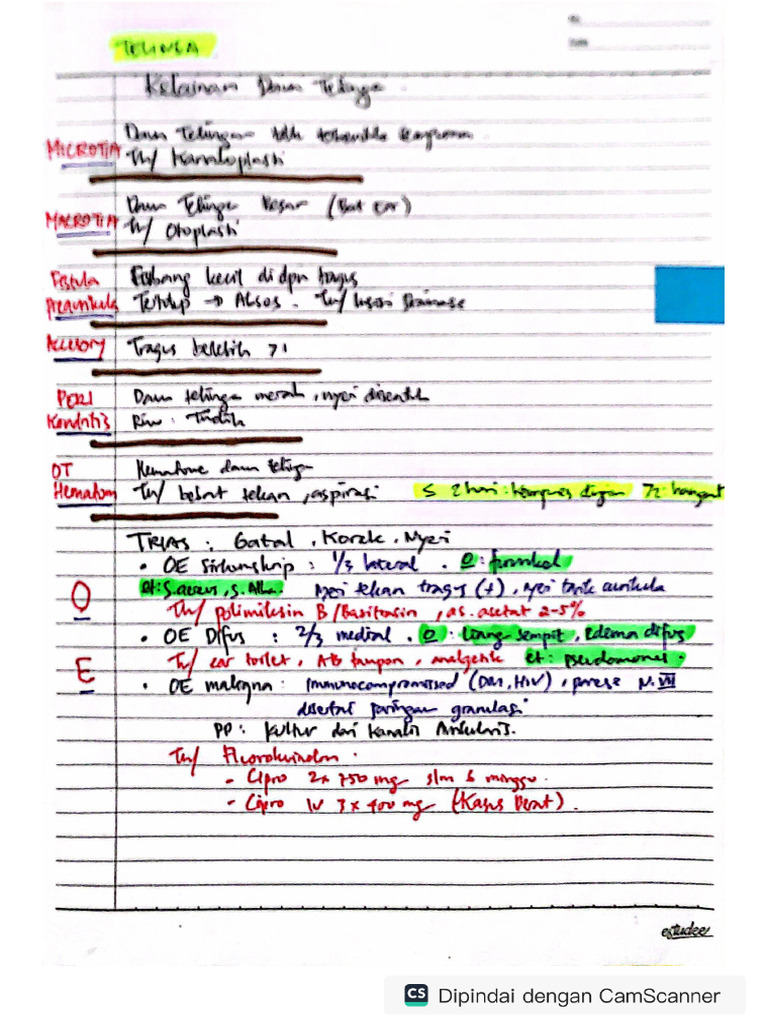 TELINGA
Kelainan Daun Telinga
MICROTIA
Daun Telinga tdk terbentuk sempurna
Th/ Kanaloplasti
MACROTIA
Daun Telinga Besar (Bat Ear)
Th/ Otoplasti
Fistula Preaurikula
Lubang kecil di dpn tragus
Tertutup → Abses. Th/ Insisi Drainase
Accesory
Tragus berlebih >1
PERI Kondritis
Daun telinga merah, nyeri disentuh
Riw: Tindik
OT Hematom
Hematome daun telinga
Th/ bebat tekan, aspirasi ≤ 2 hari: kompres dingin >2: hangat
TRIAS: Gatal, Korek, Nyeri
• OE Sirkumskrip: 1/3 lateral. O: furunkel
et: S. aureus, S. Alba. Nyeri tekan tragus (+), nyeri tarik aurikula
O
Th/ polimiksin B/Basitrasin, as. asetat 2-5%
• OE Difus: 2/3 medial. O: Liang sempit, Edema difus
E
Th/ ear toilet, AB tampon, analgetik et: pseudomonas.
• OE maligna: Immunocompromised (DM, HIV), parese N. VII
disertai jaringan granulasi
PP: Kultur dari Kanalis Aurikularis.
Th/ Fluorokuinolon.
- Cipro 2x 750 mg slm 6 minggu.
- Cipro IV 3 x 400 mg (Kasus Berat).
estudee
CS Dipindai dengan CamScanner